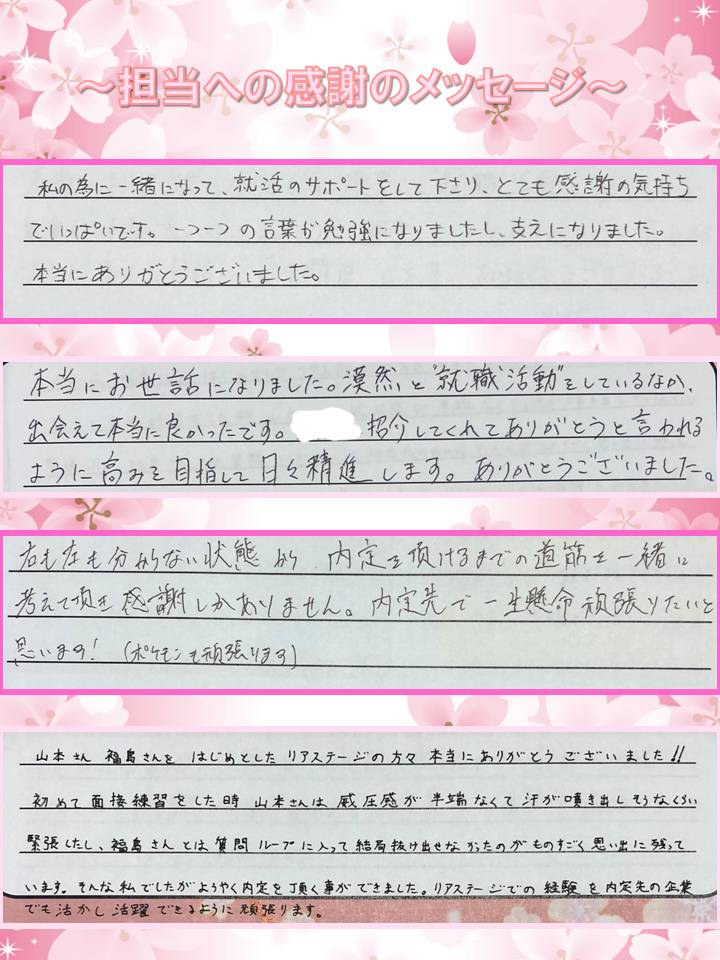 ～担当への感謝のメッセージ～
私の為に一緒になって、就活のサポートをして下さり、とても感謝の気持ち
でいっぱいです。一つ一つの言葉が勉強になりましたし、支えになりました。
本当にありがとうございました。
本当にお世話になりました。漠然と"就職活動"をしているなか、
出会えて本当に良かったです。 紹介してくれてありがとうと言われる
ように高みを目指して日々精進します。ありがとうございました。
右も左も分からない状態から、内定を頂けるまでの道筋を一緒に
考えて頂き感謝しかありません。内定先で一生懸命頑張りたいと
思います!(ポケモンも頑張ります)
山本さん 福島さんを はじめとした リアステージの方々 本当にありがとう ございました!!
初めて面接練習をした時 山本さんは 威圧感が 半端なくて 汗が噴き出しそうなくらい
緊張したし、福島さんとは質問ループに入って結局抜け出せなかったのがものすごく思い出に残って
います。そんな私でしたがようやく内定を頂く事ができました。リアステージでの経験を内定先の企業
でも活かし活躍できるように頑張ります。